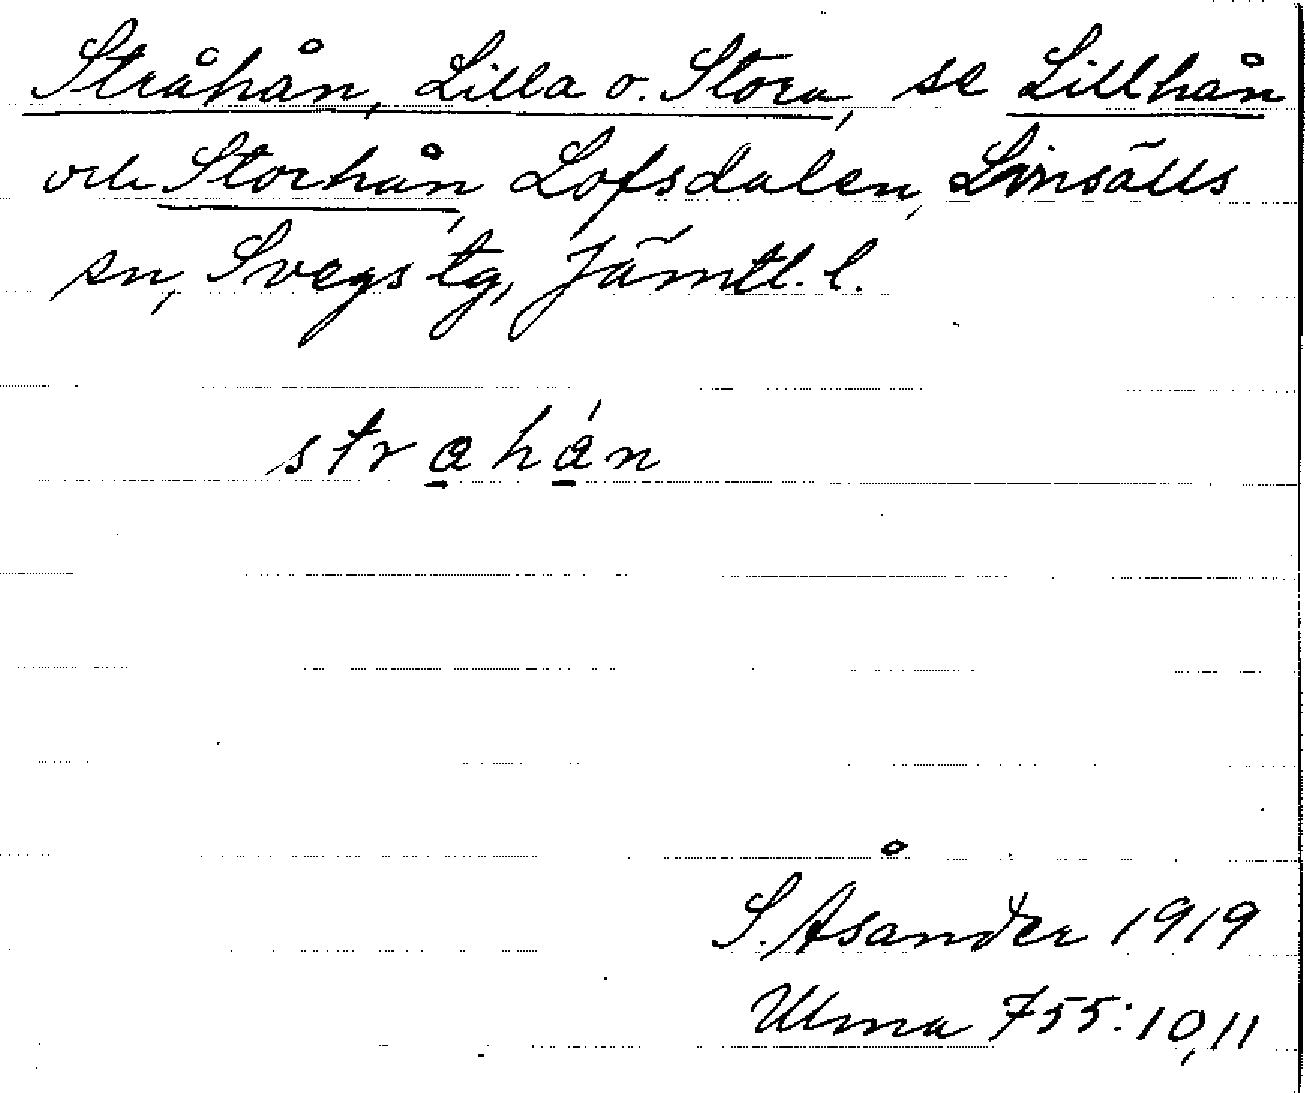 Stråhån, Lilla o. Stora, se Lillhån
och Storhån, Lofsdalen, Linsälls
sn, Svegs tg, Jämtl. l.
strahán
S. Åsander 1919
Ulma 755:10,11